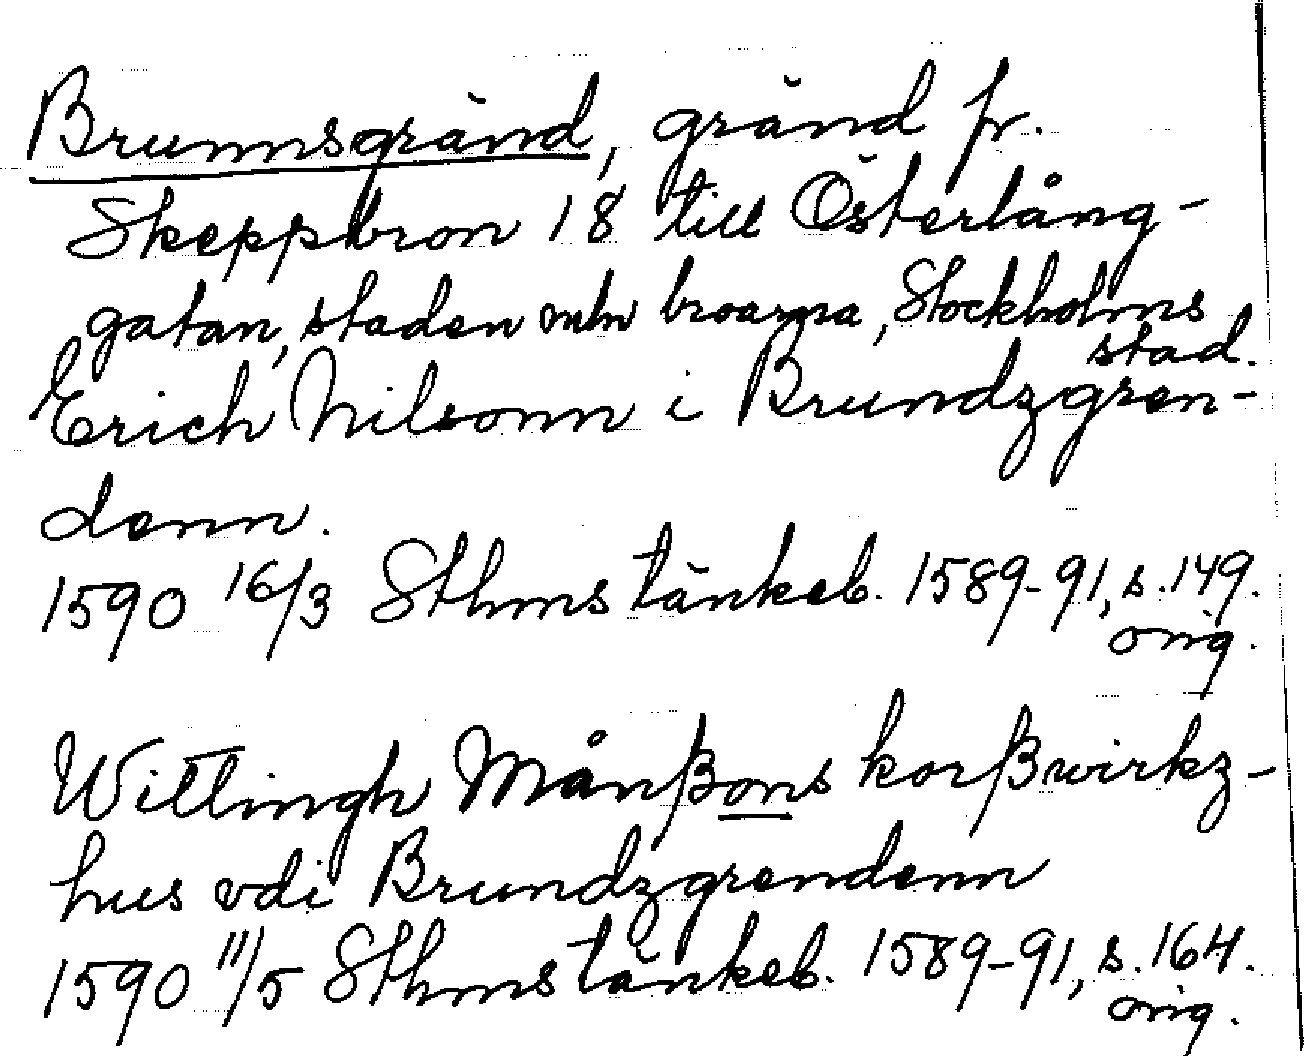 Brunnsgränd, gränd fr.
Skeppsbron 18 till Österlång-
gatan, staden mln broarna, Stockholms
stad.
Erich Nilsonn i Brundzgren-
denn.
1590 16/3 Sthms tänkeb. 1589-91, s. 149.
orig.
Willingh Månßons korßwirkz-
hus vdi Brundzgrendenn
1590 11/5 Sthms tänkeb. 1589-91, s. 164.
orig.